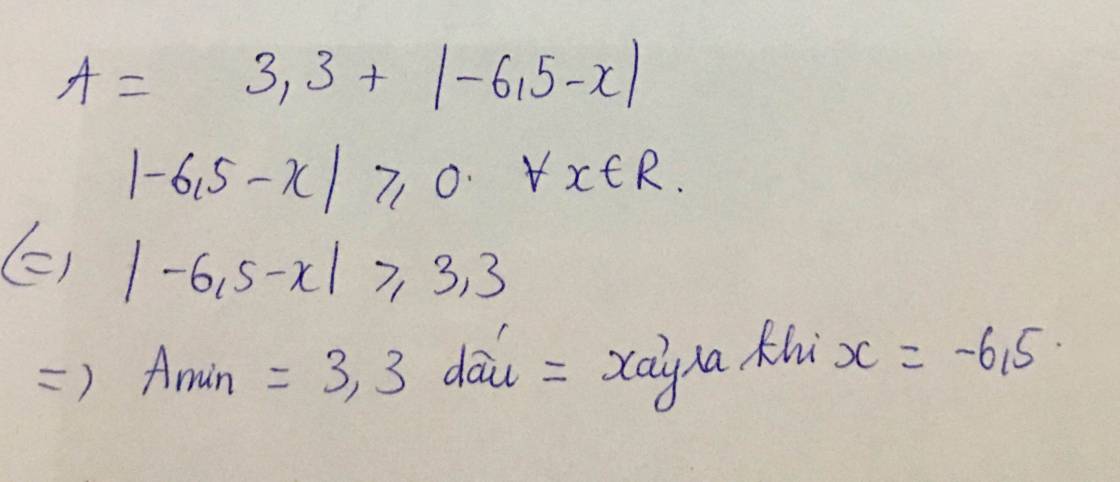 A = 3,3 + |-6,5-x|
|-6,5-x| ⩾ 0. ∀ x ∈ R.
(=) |-6,5-x| ⩾ 3,3
=) Amin = 3,3 dấu = xảy ra khi x = -6,5.